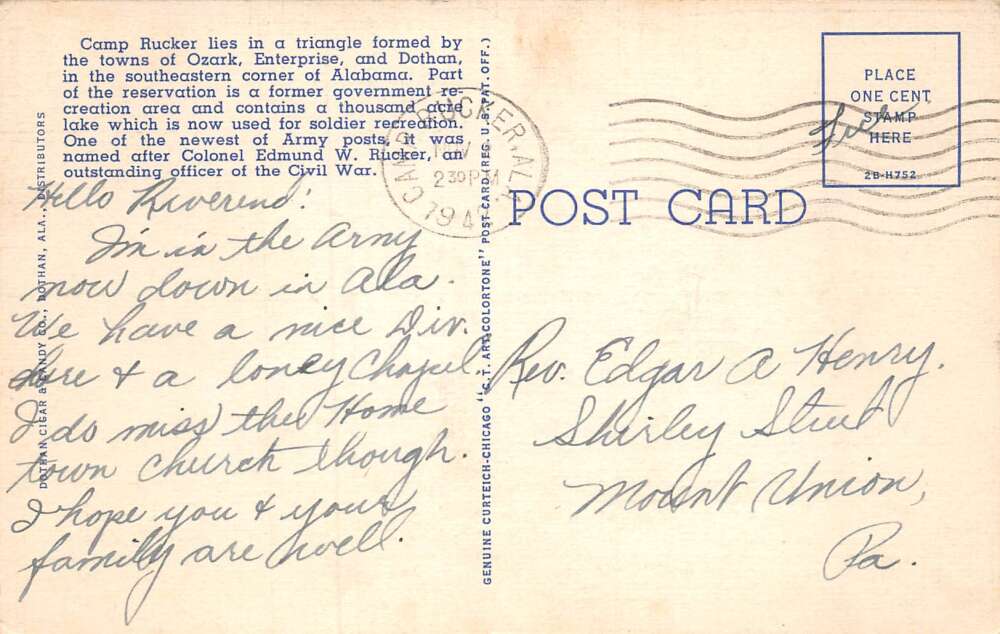 Camp Rucker lies in a triangle formed by
the towns of Ozark, Enterprise, and Dothan,
in the southeastern corner of Alabama. Part
of the reservation is a former government re-
creation area and contains a thousand acre
lake which is now used for soldier recreation.
One of the newest of Army posts, it was
named after Colonel Edmund W. Rucker, an
outstanding officer of the Civil War.
DOTHAN CIGAR & CANDY CO., DOTHAN, ALA., DISTRIBUTORS
Hello Reverend.
I'm in the Army
now down in Ala.
We have a nice Div.
here & a Chapel.
I do miss the Home
town church though.
I hope you & your
family are well.
GENUINE CURTEICH-CHICAGO "C.T. ART-COLORTONE" POST CARD (REG. U.S. PAT. OFF.)
CAMP RUCKER, ALA.
2 30 PM
194
POST CARD
PLACE
ONE CENT
STAMP
HERE
2B-H752
Free
Rev. Edgar A Henry.
Shirley Street
Mount Union,
Pa.